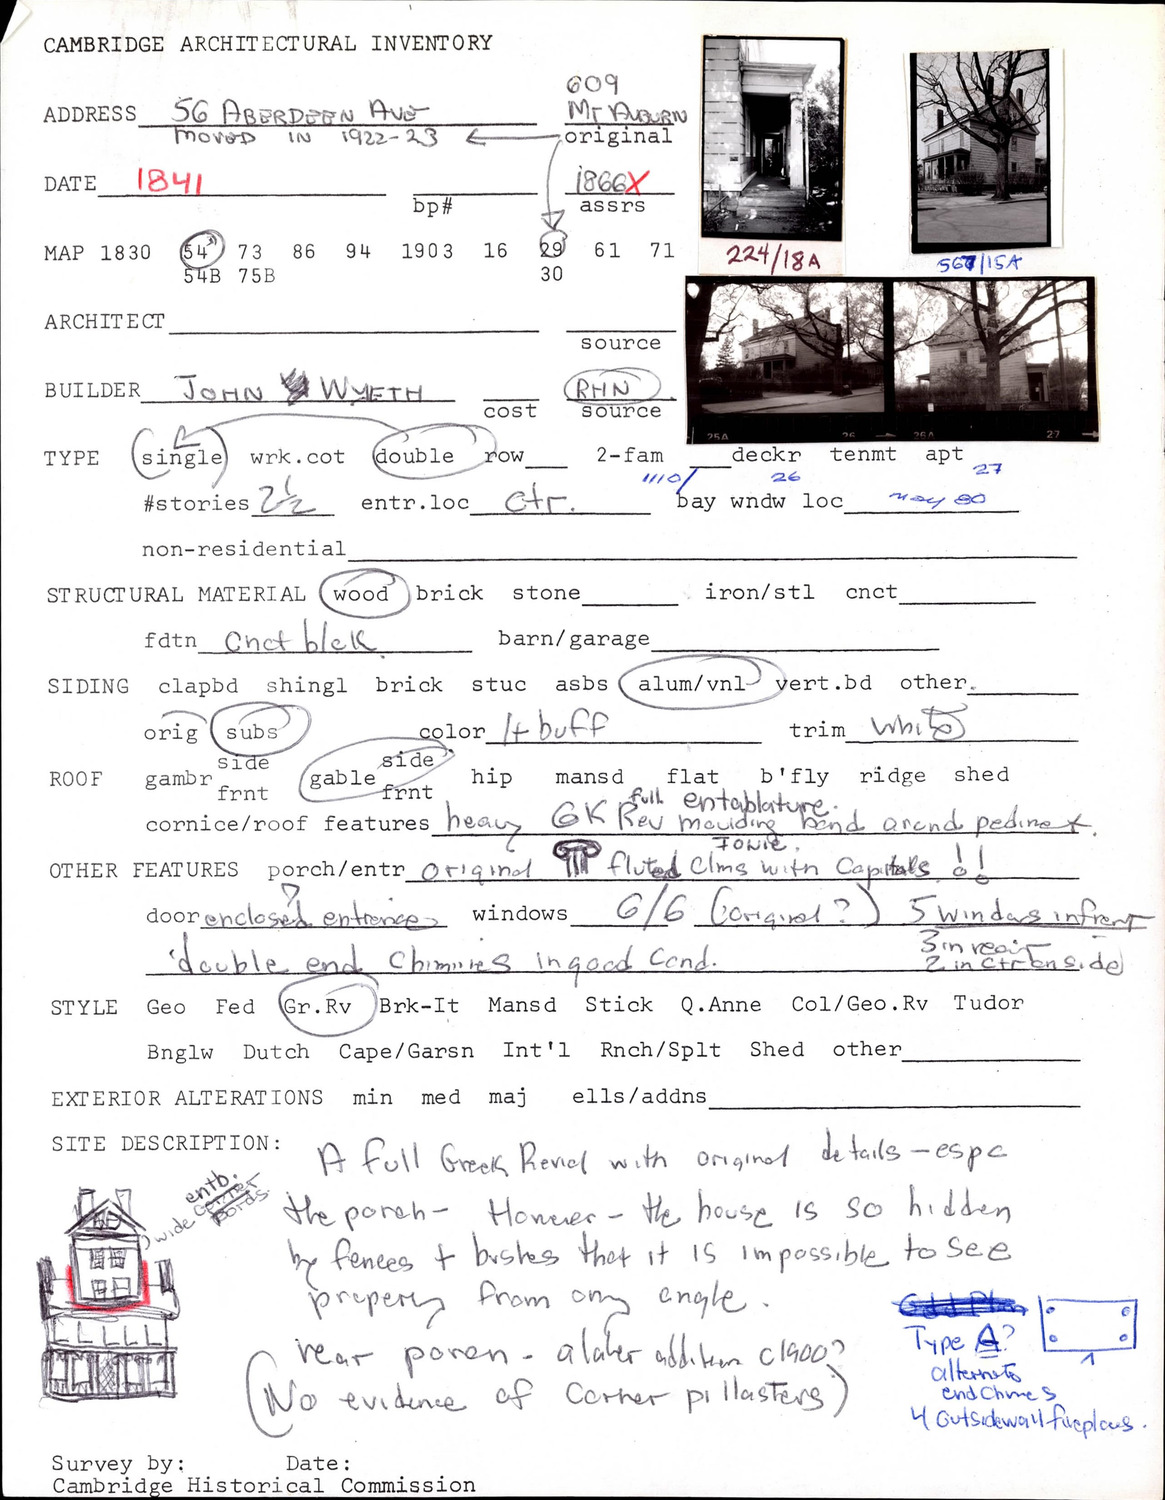 CAMBRIDGE ARCHITECTURAL INVENTORY
609
ADDRESS 56 ABERDEEN AVE Mt AUBURN
MOVED IN 1922-23 original
DATE 1841 1866X
bp# assrs
224/18A 567/15A
MAP 1830 54 73 86 94 1903 16 29 61 71
54B 75B 30
ARCHITECT
source
BUILDER JOHN WYETH RHN
cost source
25A 26 26A 27
TYPE single wrk.cot double row 2-fam deckr tenmt apt
1110/ 26 27
#stories 2½ entr.loc ctr. bay wndw loc may 80
non-residential
STRUCTURAL MATERIAL wood brick stone iron/stl cnct
fdtn Cnct blcK barn/garage
SIDING clapbd shingl brick stuc asbs alum/vnl vert.bd other
orig subs color lt buff trim white
side side
ROOF gambr gable hip mansd flat b'fly ridge shed
frnt frnt
full entablature.
cornice/roof features heavy GK Rev moulding band arond pedimet.
Ionic.
OTHER FEATURES porch/entr original fluted clms with Capitals !!
door enclosed entrances windows 6/6 (original?) 5 windows in front
3 in rear
double end Chimnies in good Cond. 2 in ctr on side
STYLE Geo Fed Gr.Rv Brk-It Mansd Stick Q.Anne Col/Geo.Rv Tudor
Bnglw Dutch Cape/Garsn Int'l Rnch/Splt Shed other
EXTERIOR ALTERATIONS min med maj ells/addns
SITE DESCRIPTION:
A full Greek Revival with original details - espc
entb.
wide corner
bords
the porch - However - the house is so hidden
by fences + bushes that it is impossible to see
properly from any angle.
rear porch - a later addition c1900?
(No evidence of Corner pillasters)
Type A?
alternate
end Chmes
4 outsidewall fireplaces.
Survey by: Date:
Cambridge Historical Commission